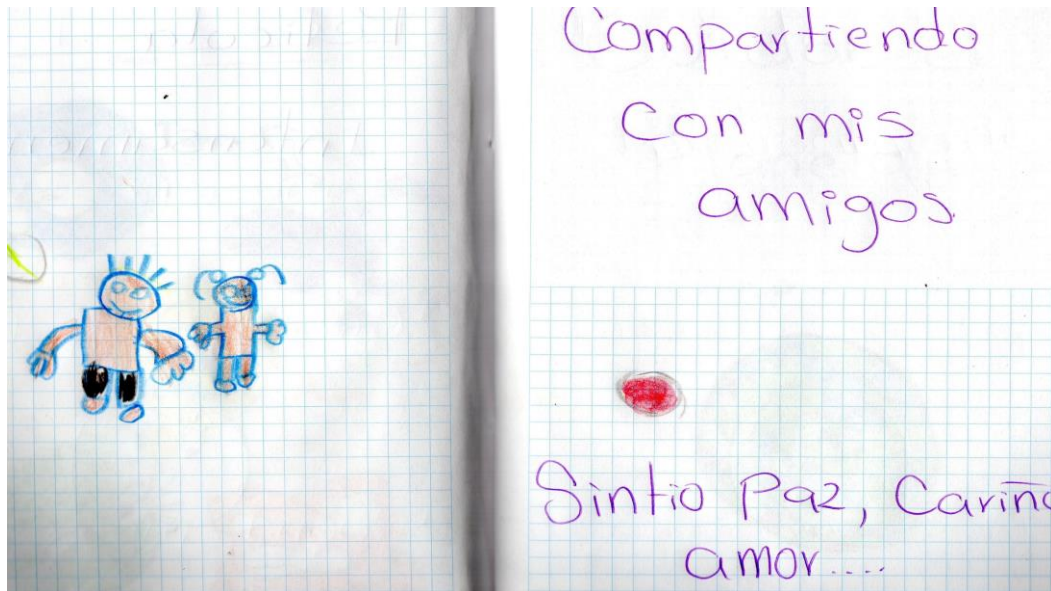 Compartiendo
Con mis
amigos.
Sintio Paz, Cariño
amor....